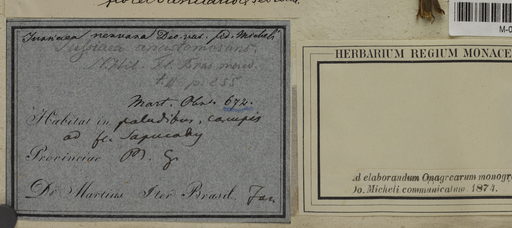 Jussiaea nervosa var. fid. Micheli
Jussiaea
St. Hil. Fl. Bras. merid.
t. II p. 255
Mart. Obs. 672.
Habitat in paludibus, campis
ad fl. Sapucahy
Provinciae
Dr. Martius Iter Brasil. Jan.
HERBARIUM REGIUM MONACE
Ad elaborandum Onagrearum monogr
Jo. Micheli communicatum 1874.
M-0